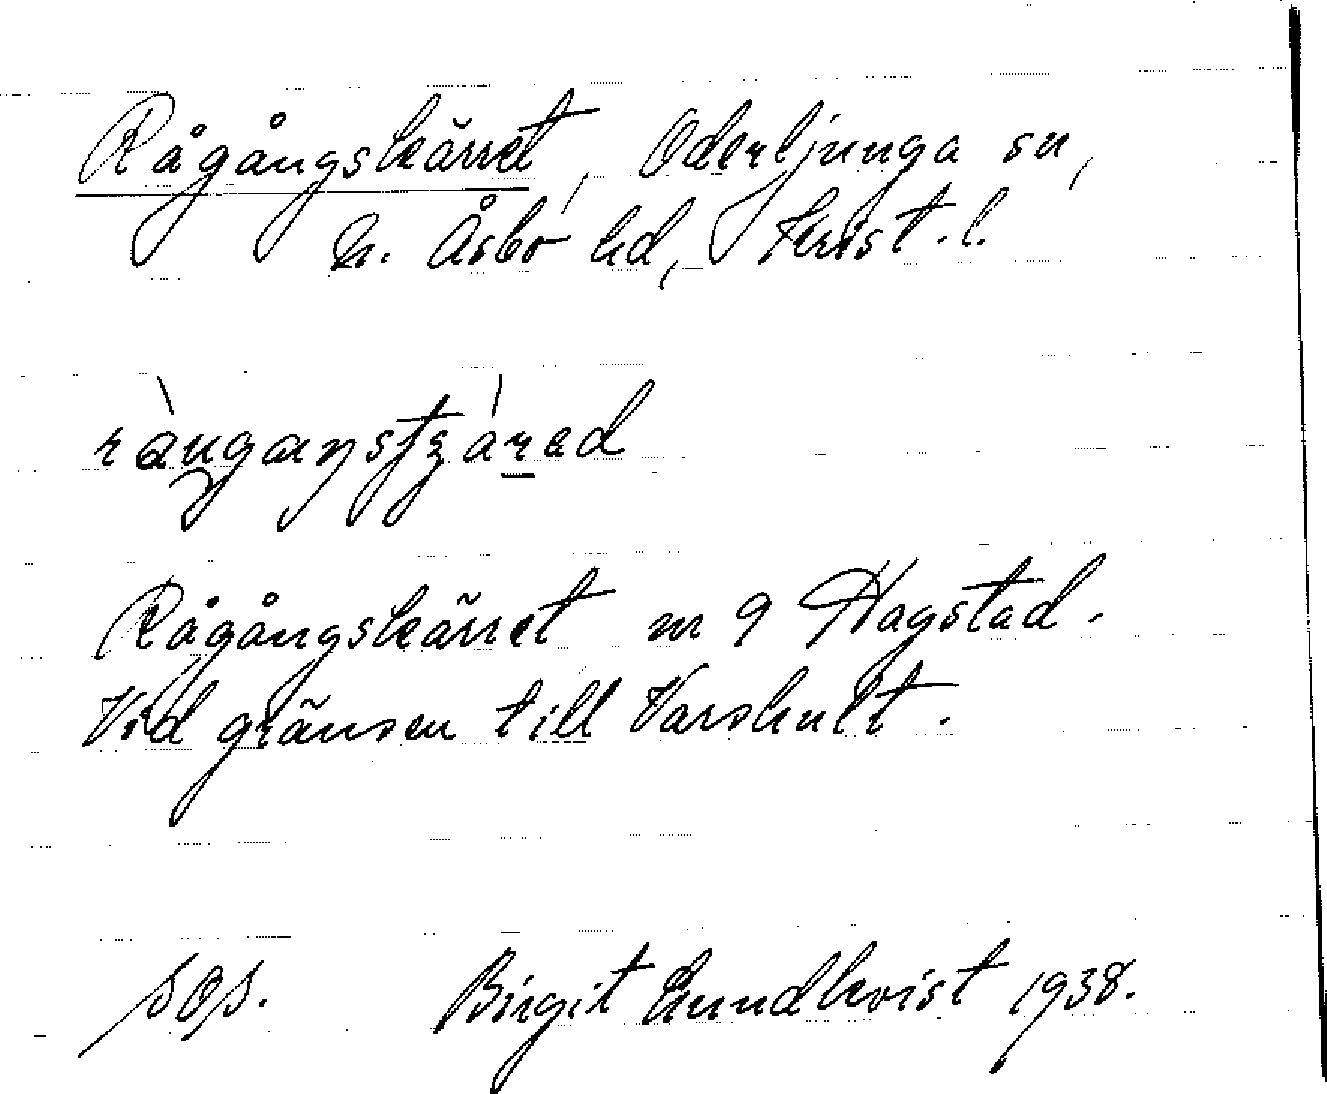 Rågångskärret, Oderljunga sn,
N. Åsbo hd, Krist. l.
Rågångskärret nr 9 Hagstad.
Vid gränsen till Varshult.
SOS. Birgit Lundkvist 1938.